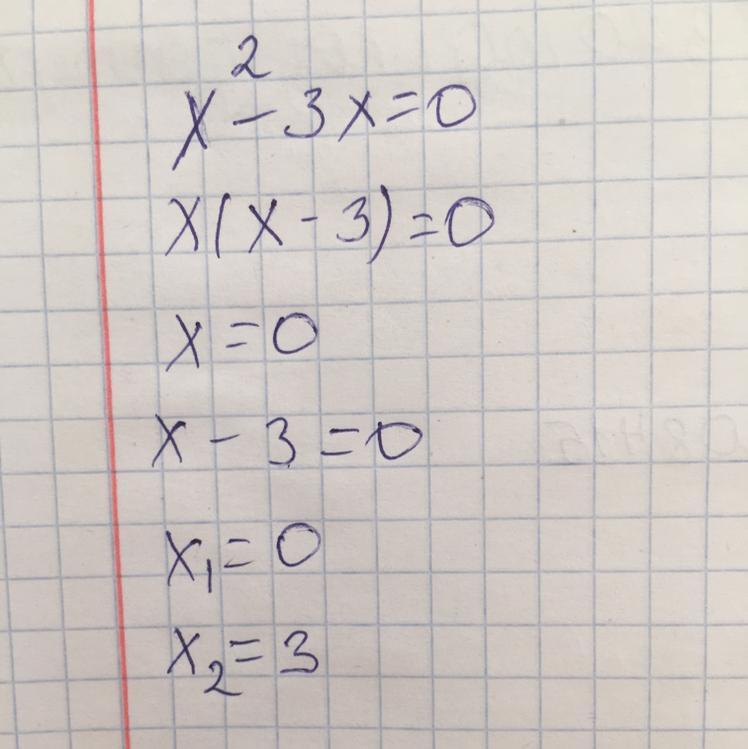 x² - 3x = 0
x(x - 3) = 0
x = 0
x - 3 = 0
x₁ = 0
x₂ = 3